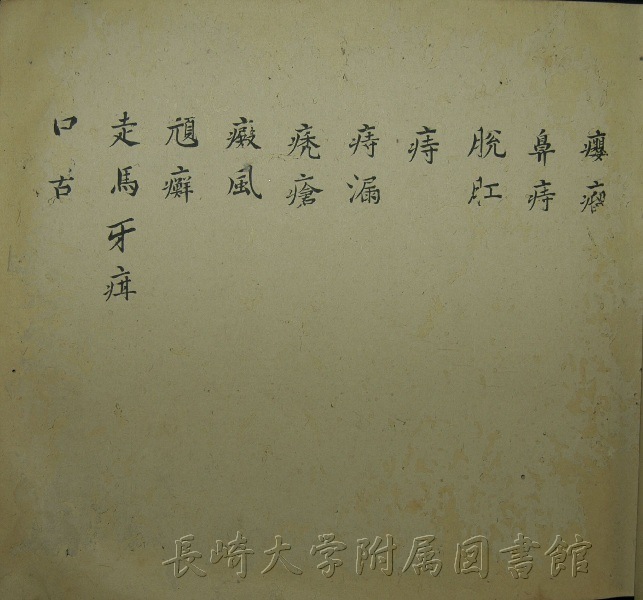 癭瘤
鼻痔
脫肛
痔
痔漏
禿瘡
癜風
頑癬
走馬牙疳
口古
長崎大学附属図書館